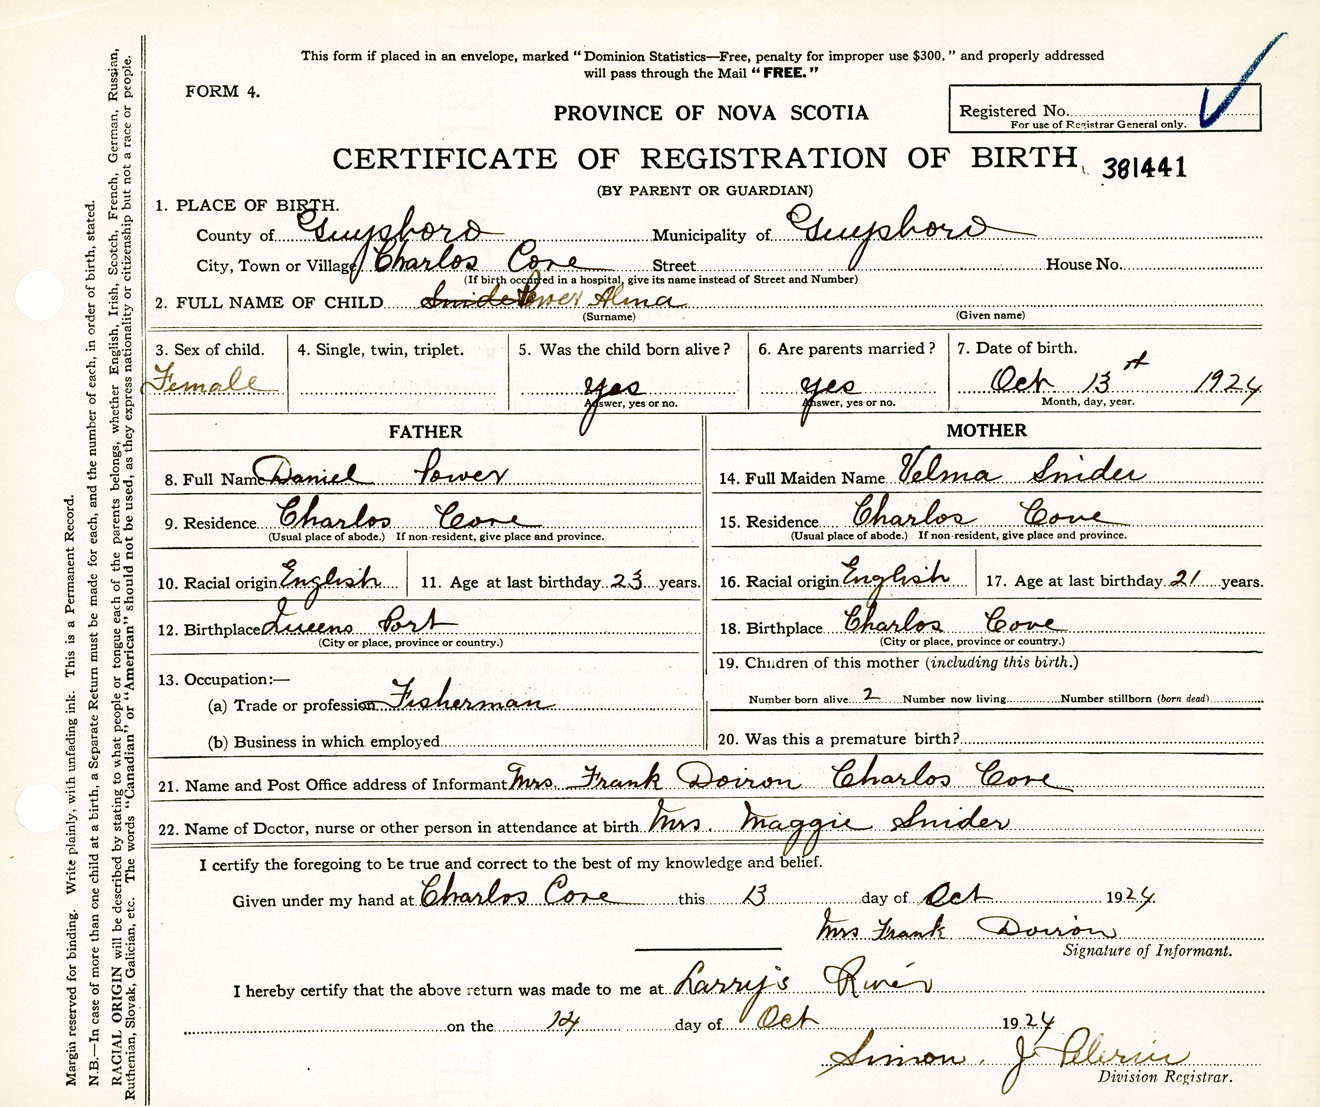 This form if placed in an envelope, marked "Dominion Statistics—Free, penalty for improper use $300," and properly addressed
will pass through the Mail "FREE."
FORM 4.
PROVINCE OF NOVA SCOTIA
Registered No.
For use of Registrar General only.
CERTIFICATE OF REGISTRATION OF BIRTH
381441
(BY PARENT OR GUARDIAN)
1. PLACE OF BIRTH.
County of Guysboro Municipality of Guysboro
City, Town or Village Charlos Cove Street House No.
(If birth occurred in a hospital, give its name instead of Street and Number)
2. FULL NAME OF CHILD Snider Power Alma
(Surname) (Given name)
3. Sex of child. 4. Single, twin, triplet. 5. Was the child born alive? 6. Are parents married? 7. Date of birth.
Female yes yes Oct 13 1924
Answer, yes or no. Answer, yes or no. Month, day, year.
FATHER MOTHER
8. Full Name Daniel Power 14. Full Maiden Name Velma Snider
9. Residence Charlos Cove 15. Residence Charlos Cove
(Usual place of abode.) If non-resident, give place and province. (Usual place of abode.) If non-resident, give place and province.
10. Racial origin English 11. Age at last birthday 23 years. 16. Racial origin English 17. Age at last birthday 21 years.
12. Birthplace Queens Port 18. Birthplace Charlos Cove
(City or place, province or country.) (City or place, province or country.)
13. Occupation:— 19. Children of this mother (including this birth.)
(a) Trade or profession Fisherman Number born alive 2 Number now living Number stillborn (born dead)
(b) Business in which employed 20. Was this a premature birth?
21. Name and Post Office address of Informant Mrs. Frank Doiron Charlos Cove
22. Name of Doctor, nurse or other person in attendance at birth Mrs. Maggie Snider
I certify the foregoing to be true and correct to the best of my knowledge and belief.
Given under my hand at Charlos Cove this 13 day of Oct 1924.
Mrs Frank Doiron
Signature of Informant.
I hereby certify that the above return was made to me at Larry's River
on the 14 day of Oct 1924
Simon J Pelerin
Division Registrar.
Margin reserved for binding. Write plainly, with unfading ink. This is a Permanent Record.
N.B.—In case of more than one child at a birth, a Separate Return must be made for each, and the number of each, in order of birth, stated.
RACIAL ORIGIN will be described by stating to what people or tongue each of the parents belongs, whether English, Irish, Scotch, French, German, Russian,
Ruthenian, Slovak, Galician, etc. The words "Canadian" or "American" should not be used, as they express nationality or citizenship but not a race or people.